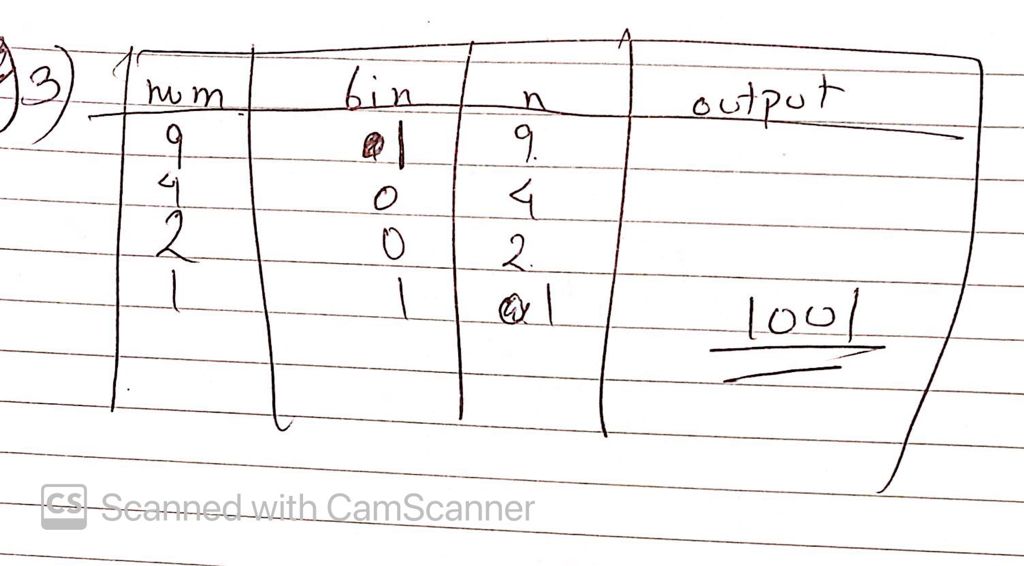 3)
num bin n output
9 1 9
4 0 4
2 0 2
1 1 1 1001
CS Scanned with CamScanner